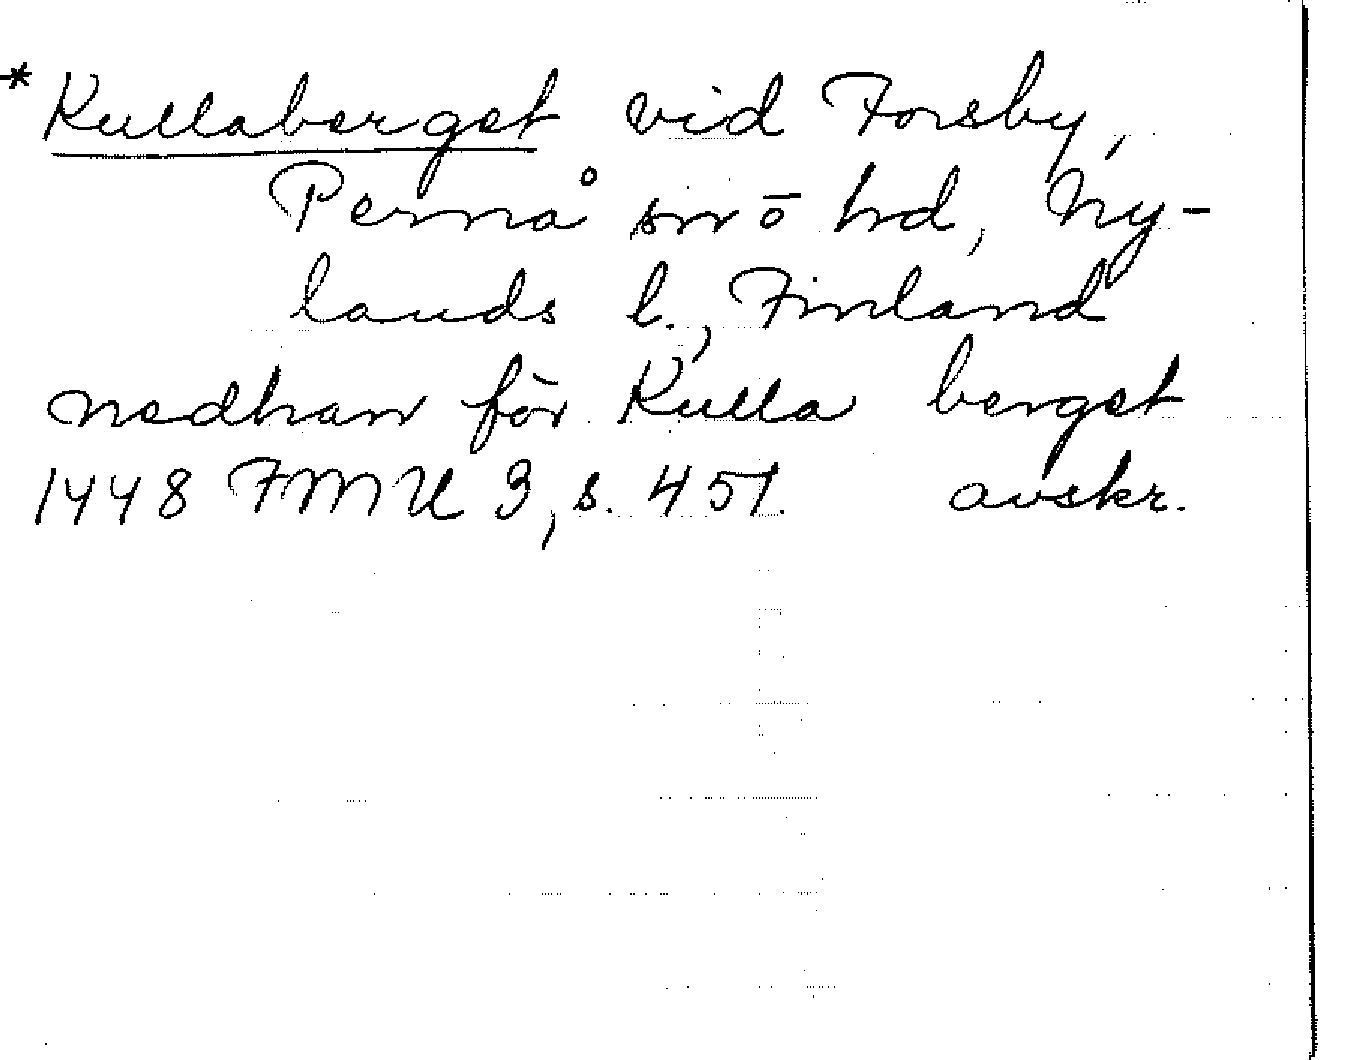 *Kullaberget vid Forsby,
Pernå sn o hd, Ny-
lands l., Finland
nedhan för Kulla berget
1448 FMU 3, s. 451. avskr.